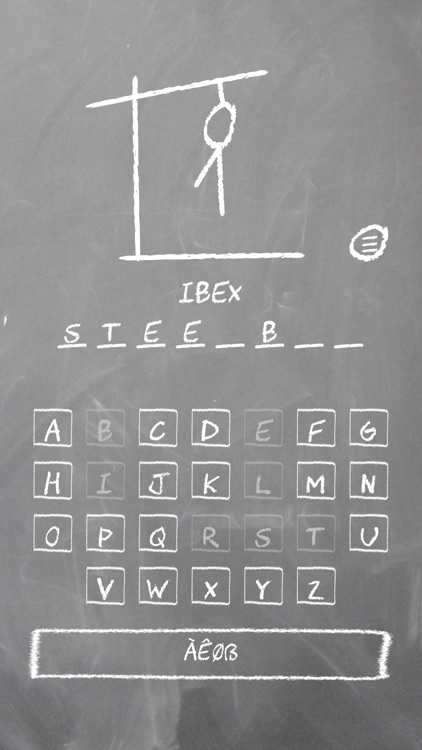 IBEX
S T E E _ B _ _
A B C D E F G
H I J K L M N
O P Q R S T U
V W X Y Z
ÀÊØß